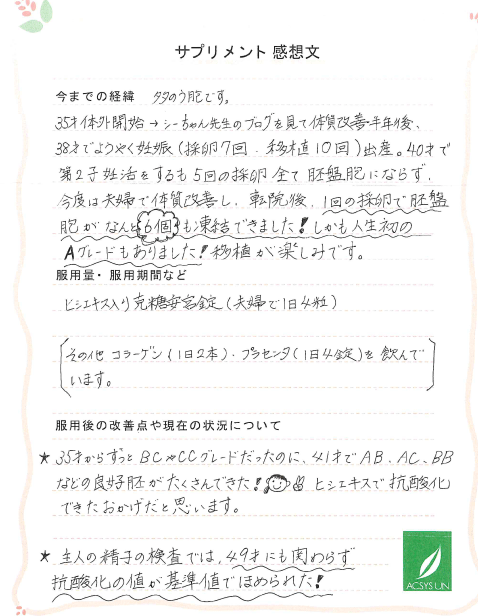 サプリメント 感想文
今までの経緯 多のう胞です。
35才体外開始→シーちゃん先生のブログを見て体質改善半年後、
38才でようやく妊娠(採卵7回・移植10回)出産。40才で
第2子妊活をするも5回の採卵全て胚盤胞にならず、
今度は夫婦で体質改善し、転院後、1回の採卵で胚盤
胞がなんと6個も凍結できました!しかも人生初の
Aグレードもありました!移植が楽しみです。
服用量・服用期間など
ヒシエキス入り克糖安宮錠(夫婦で1日4粒)
(その他 コラーゲン(1日2本)・プラセンタ(1日4錠)を飲んで
います。)
服用後の改善点や現在の状況について
★ 35才からずっとBCやCCグレードだったのに、41才でAB、AC、BB
などの良好胚がたくさんできた! ヒシエキスで抗酸化
できたおかげだと思います。
★ 主人の精子の検査では、49才にも関わらず
抗酸化の値が基準値でほめられた!
ACSYS UN